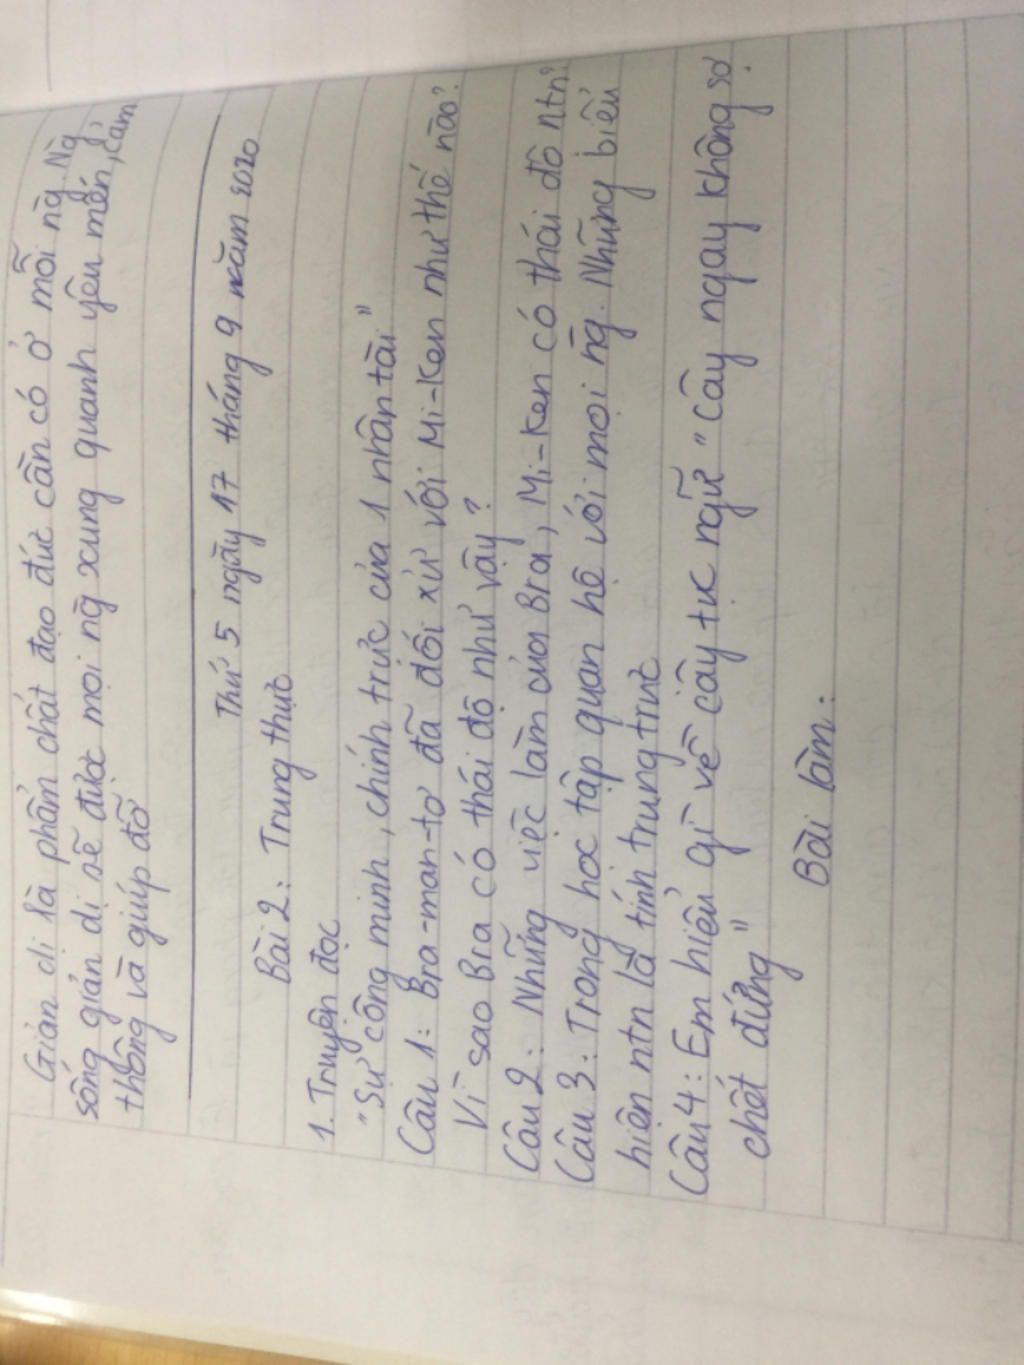 Giản dị là phẩm chất đạo đức cần có ở mỗi ng̀. Ng̀
sống giản dị sẽ được mọi ng̀ xung quanh yêu mến, cảm
thông và giúp đỡ
Thứ 5 ngày 17 tháng 9 năm 2020
Bài 2: Trung thực
1. Truyện đọc
"Sự công minh, chính trực của 1 nhân tài"
Câu 1: Bra-man-tơ đã đối xử với Mi-Ken như thế nào?
Vì sao Bra có thái độ như vậy?
Câu 2: Những việc làm của Bra, Mi-Ken có thái độ ntn?
Câu 3: Trong học tập quan hệ với mọi ng̀. Những biểu
hiện ntn là tính trung trực
Câu 4: Em hiểu gì về câu tục ngữ "Cây ngay không sợ
chết đứng"
Bài làm: